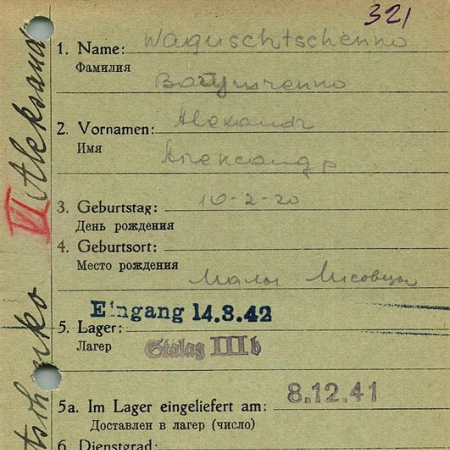 321
1. Name: Waguschtschenko
Фамилия
Вагущенко
2. Vornamen: Alexandr
Имя
Александр
3. Geburtstag: 10-2-20
День рождения
4. Geburtsort:
Место рождения
Eingang 14.8.42
5. Lager: Stalag IIIb
Лагерь
8.12.41
5a. Im Lager eingeliefert am:
Доставлен в лагерь (число)
6. Dienstgrad:
VI Aleksand